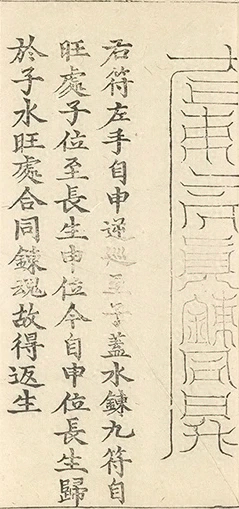 右符左手自申逆巡至子蓋水鍊九符自
旺處子位至長生申位今自申位長生歸
於子水旺處合同鍊魂故得返生